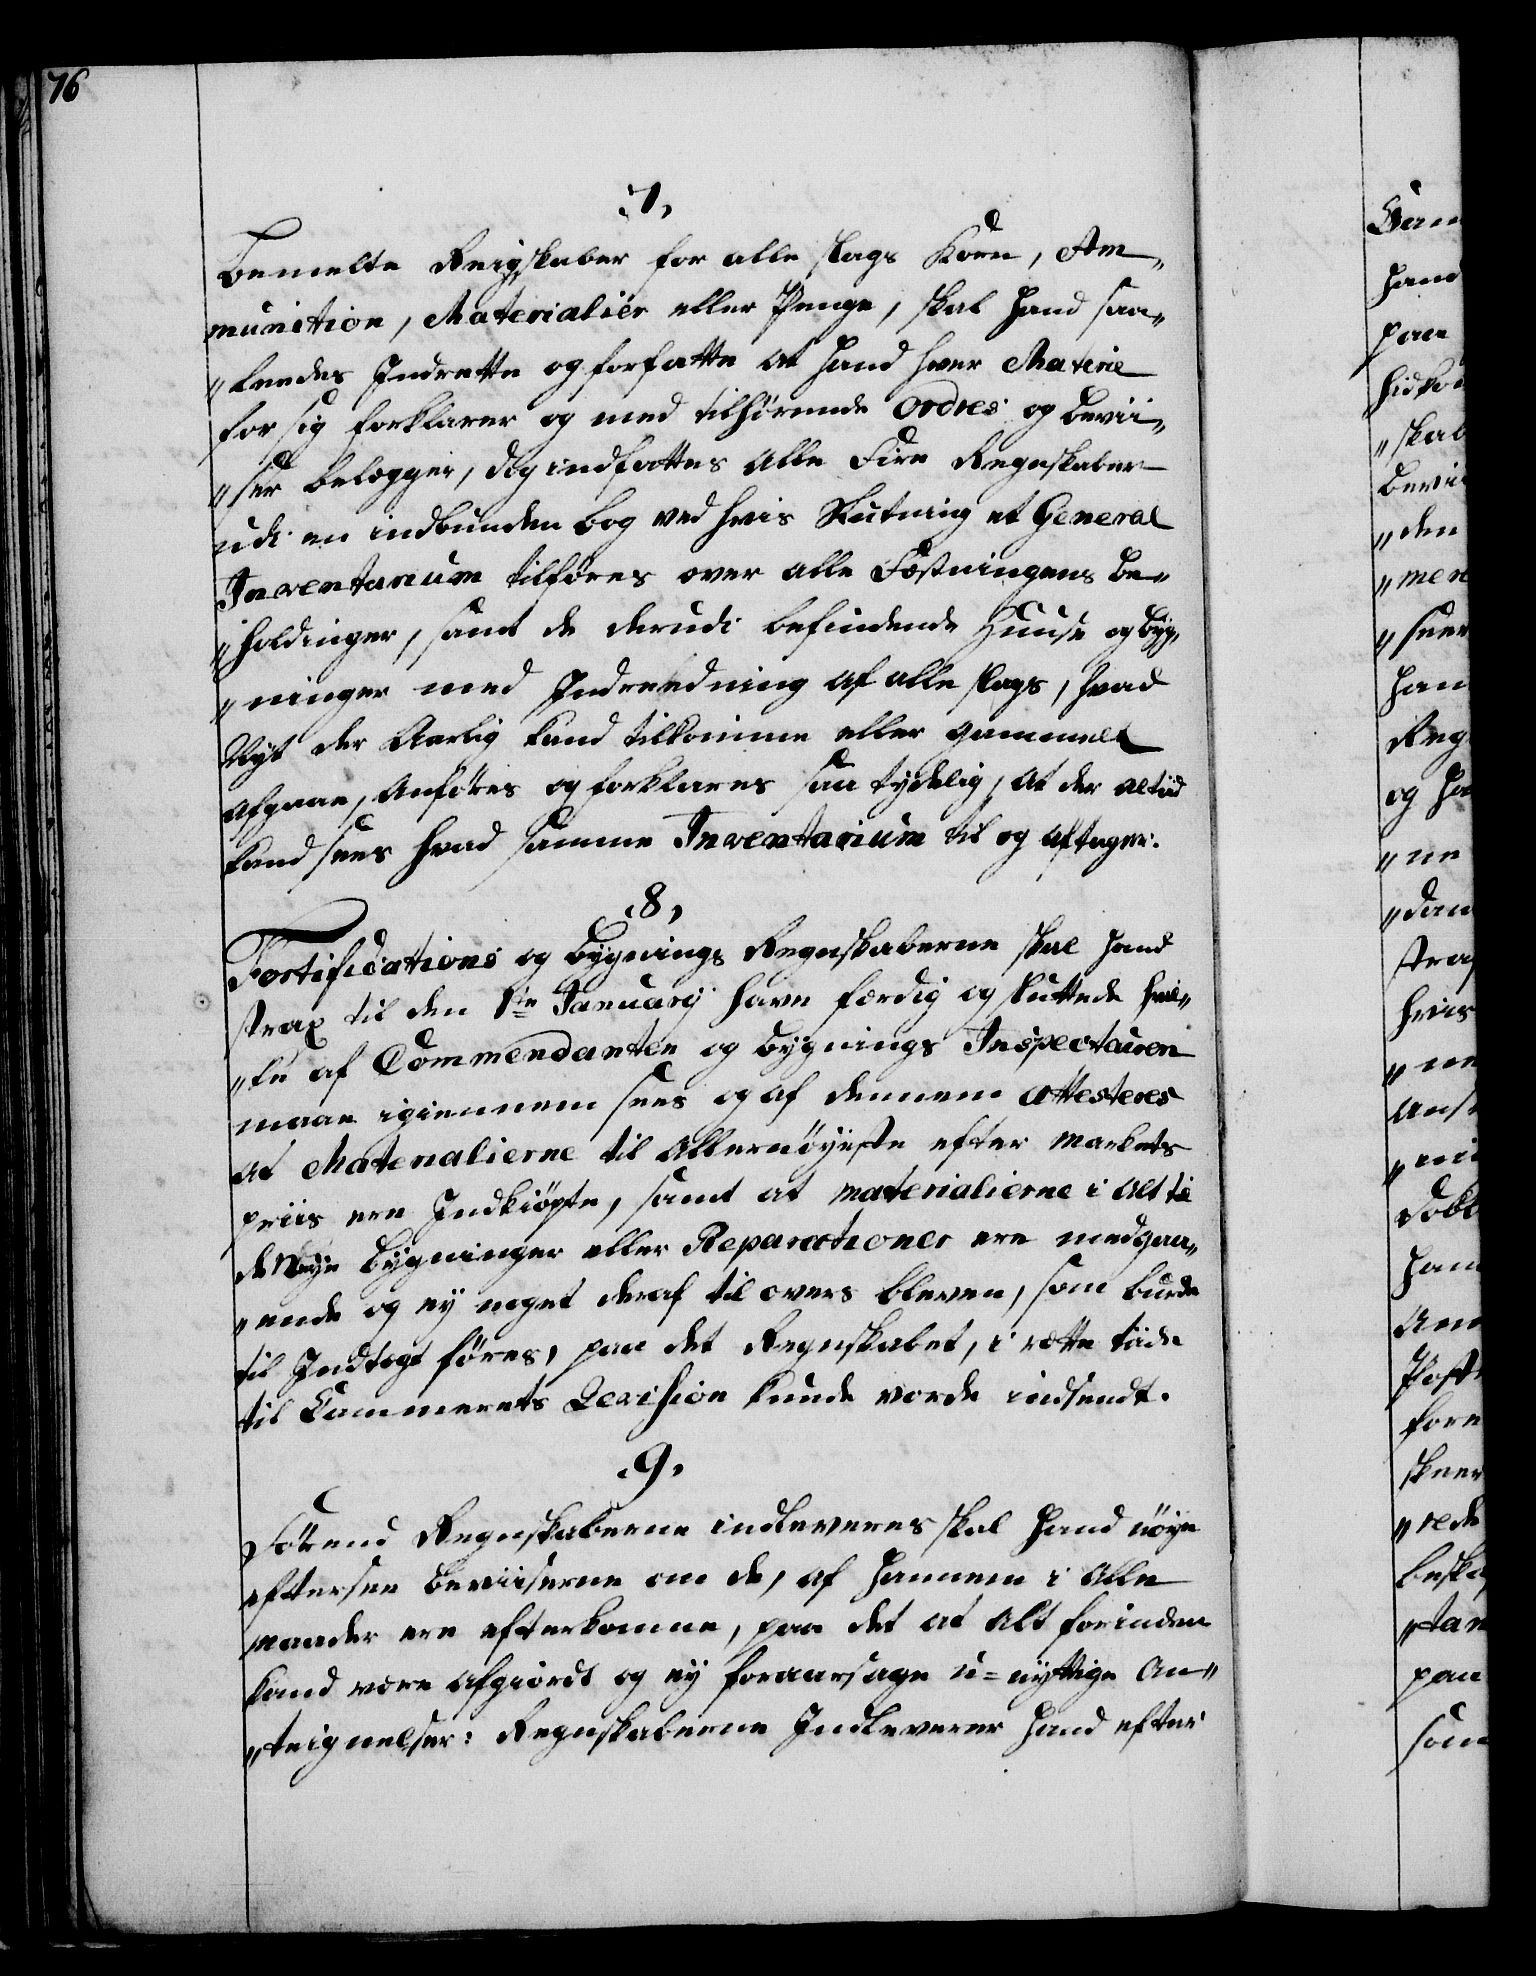 76
.7,
Bemelte Reigskaber for alle slags Korn, Am„
munition, Materialier eller Penge, skal hand saa„
„ledes Indrette og forfatte at hand hver Materie
for sig forklarer og med tilhørende Ordres og bevii„
„ser belegger, dog indfattes alle Fire Regnskaber
udi en indbunden bog ved hvis Slutning et General
Inventarium tilføres over alle Festningens be„
„holdinger, samt de derudi befindende Huuse og byg„
„ninger med Indreedning af alle slags, hvad
Nyt der Aarlig kand tilkomme eller gammelt
afgaae, anføres og forklares saa tydelig, at der altid
kand sees hvad samme Inventarium til og aftager.
.8,
Fortifications og bygnings Regnskaberne skal hand
strax til den 1te January have færdig og sluttede hvil„
„ke af Commendanten og bygnings Inspecteuren
maae igiennem sees og af dennem attesteres
at Materialierne til allernøyeste efter markets
priis ere Indkiøpte, samt at materialierne i alt til
de Nye bygninger eller Reparationer ere medgaa„
„ende og ey noget deraf til overs bleven, som burde
til Indtægt føres, paa det Regnskabet, i rette tiide
til Cammerets Revision kunde vorde indsendt.
.9,
Førend Regnskaberne indleveres skal hand nøye
eftersee beviiserne om de, af hannem i alle
maader ere efterkomne, paa det at alt forinden
kand være afgiordt og ey foraarsage u=nyttige An„
„teignelser: Regnskaberne Indleverer hand efter
hand
paa
„skab
„den
„mer
han
Reg
og ha
„ne
hvis
paa
som